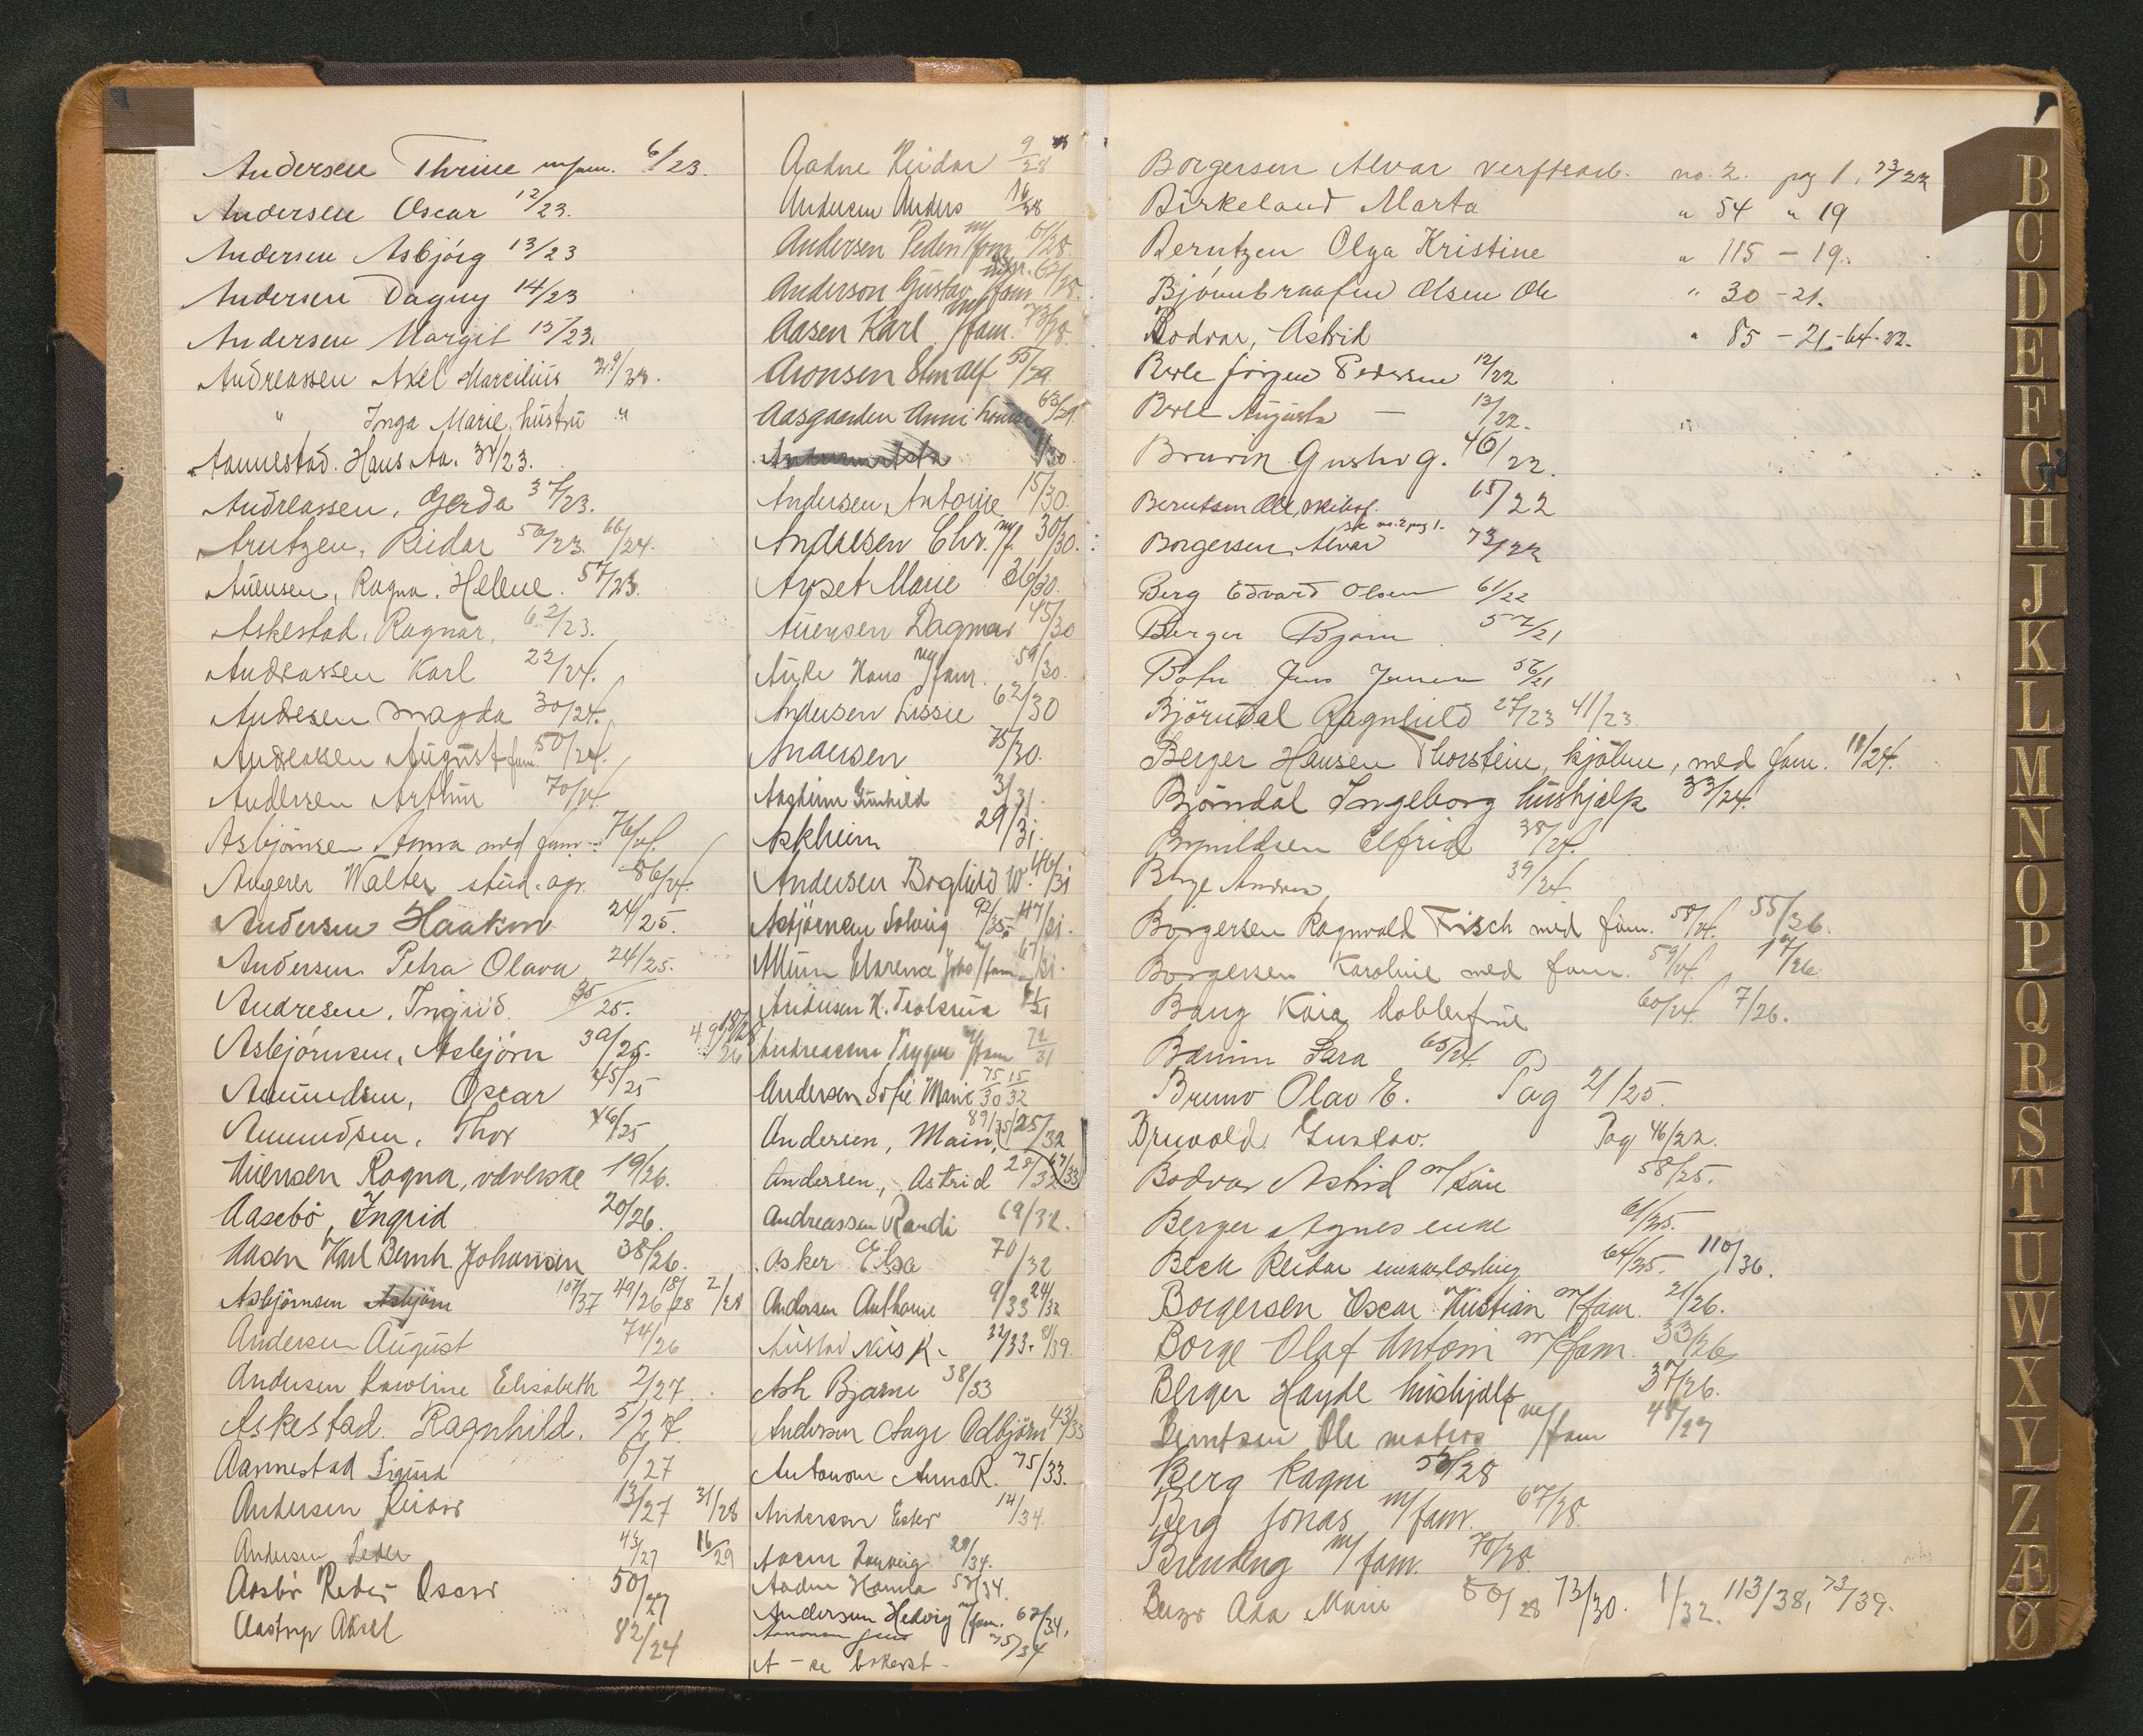 Andersen Thrine m/fam. 6/23.
Andersen Oscar 12/23.
Andersen Asbjörg 13/23
Andersen Dagny 14/23
Andersen Margit 15/23.
Andreassen Axel Marcilius 29/23.
" Inga Marie, hustru "
Aannestad. Hans Aa. 31/23.
Andreassen, Gerda 37/23.
Arntzen, Reidar 50/23. 66/24.
Auensen, Ragna. Helene. 57/23.
Askestad, Ragnar, 62/23.
Andreassen Karl 22/24.
Andresen Magda 30/24.
Andreassen August fam. 50/24.
Andersen Arthur 70/24
Asbjörnsen Anna med fam. 76/24.
Augerer Walter stud. 86/24.
Andersen Haakon 24/25.
Andersen Petra Olava 24/25.
Andresen, Ingrid. 35/25.
Asbjörnsen, Asbjörn 39/25. 49/26 18/28
Amundsen, Oscar 45/25
Amundsen, Thor 46/25
Auensen Ragna, væverske 19/26.
Aasebö, Ingrid 20/26.
Aasen Karl Bernh. Johansen 38/26.
Asbjörnsen Asbjörn 107/37 49/26 18/28 2/28
Andersen August 74/26
Andersen Karoline Elisabeth 2/27.
Askestad. Ragnhild. 5/27.
Aannestad Sigurd 6/27
Andersen Reidar 13/27 31/28
Andersen Peder 43/27 16/29
Aasbö Reder Oscar 50/27
Aastrup Aksel 82/24
Aadne Reidar 9/28
Andersen Anders 16/28
Andersen Peder m/fam 61/28.
Anderson Gustav m/fam 62/28.
Aasen Karl m/fam. 73/28.
Aronsen Alf 55/29
Aasgaarden Anni Louise 63/29
1/30
Andersen, Antonie 15/30.
Andresen Chr. m/f. 30/30.
Arset Marie 36/30.
Auensen Dagmar 45/30
Auke Hans m/fam. 59/30.
Andersen Lissie 62/30
Andersen 75/30.
Aasheim Gunhild 3/31.
Askheim 29/31.
Andersen Borghild W. 46/31
Asbjörnsen Solveig 92/35. 47/31.
Allum Clarence Joho m/fam 67/31.
Andersen H.
Andreassen Trygve m/fam 72/31
Andersen Sofie Marie 75/30 15/32
Andersen, Main, 89/35 25/32
Andersen, Astrid 28/32 67/33
Andreassen Randi 69/32.
Asker Elsa 70/32
Andersen Anthonie 9/33 24/32
Austad Nils K. 32/33. 81/39.
Ask Bjarne 38/33
Andersen Aage Odbjörn 43/33
Antonsen Anna R. 75/33.
Anderson Ester 14/34.
Aasen 29/34.
Aadne Hanna 53/34.
Andersen Hedvig m/fam. 67/34.
Aanonsen Jens 75/34
Borgersen Alvar verftsarb. no. 2. pag 1, 73/22
Birkeland Marta " 54 " 19
Berntzen Olga Kristine " 115 - 19.
Olsen Ole " 30 - 21.
Bodvar, Astrid " 85 - 21 - 64 - 22.
Berle Jörgen Pedersen 12/22
Berle Augusta — 13/22.
Gustav G. 46/22.
Berntsen Ole, 65/22
se no. 2 pag 1.
Borgersen Alvar 73/22
Berg Edvard Olsen 61/22
Berger Bjarne 52/21
Bohn Jens Jensen 56/21
Björndal Ragnhild 27/23 41/23.
Berger Hansen Thorstein, kjöbm, med fam. 18/24.
Björndal Ingeborg hushjelp 33/24.
Brynildsen Elfrid 38/24.
Berge Andrea, 39/24
Borgersen Ragnvald Frisch med fam. 58/24. 55/36.
Borgersen Karoline med fam. 59/24. 17/26
Bang Kaia 60/24. 7/26.
Bærum Sara 65/24.
Bruno Olav E. Pag 21/25.
Bruvold Gustav. Pag 46/22.
Bodvar Astrid m/ 58/25.
Berger Agnes enke 61/25.
Beck Reidar 64/25. 110/36.
Borgersen Oscar Kristian m/fam. 21/26.
Borge Olaf Antoni m/fam. 33/26
Berger Haydé hushjelp 37/26.
Berntsen Ole matros m/fam 48/27
Berg Ragni 53/28
Berg Jonas m/fam. 67/28.
Brending m/fam. 70/28.
Ada Marie 80/28 73/30. 1/32. 113/38, 73/39.
B
C
D
E
F
G
H
J
K
L
M
N
O
P
Q
R
S
T
U
W
X
Y
Z
Æ
Ø